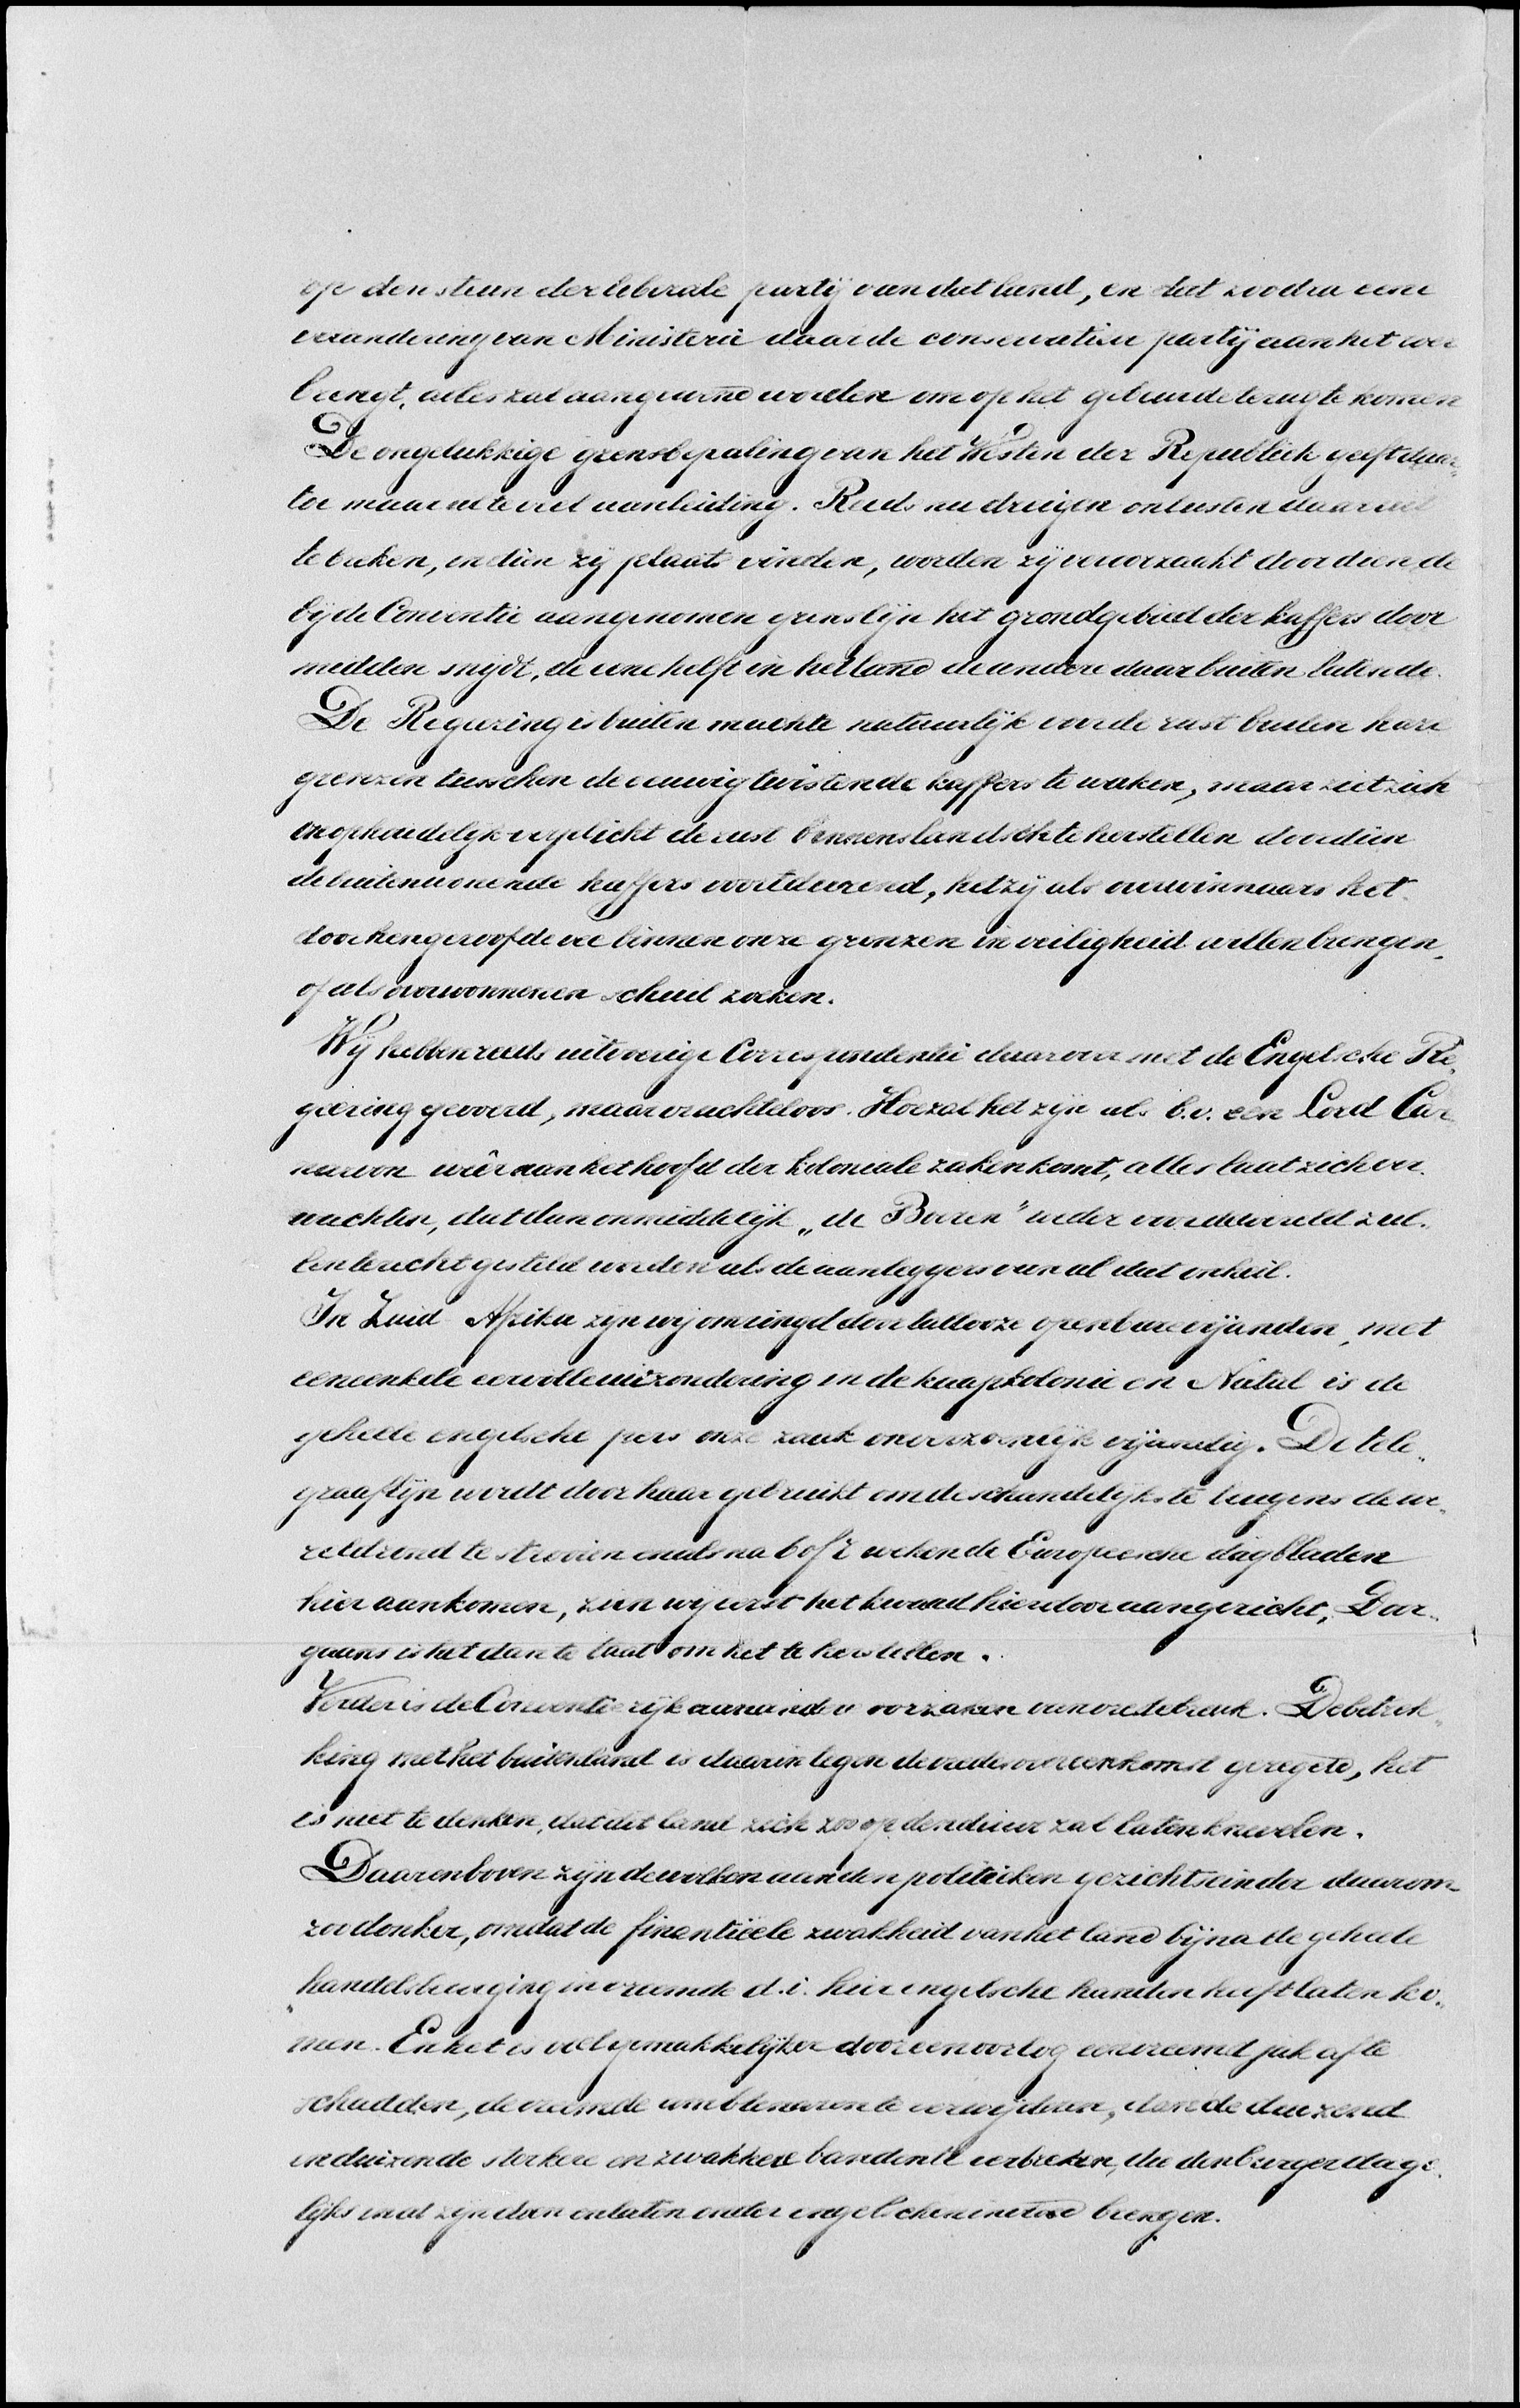 op den steun der liberale partij van dat land, en dat zoodra eene
verandering van Ministerie daar de conservatieve partij aan het roer
brengt, alles zal aangewend worden om op het gebeurde terug te komen
De ongelukkige grensbepaling van het Westen der Republiek geeft daar„
toe maar al te veel aanleiding. Reeds nu dreigen onlusten daar uit
te breken, indien zij plaats vinden, worden zij veroorzaakt doordien de
bij de Conventie aangenomen grenslijn het grondgebied der kaffers door
midden snijdt, de eene helft in het land de andere daar buiten latende.
De Regeering is buiten machte natuurlijk voor de rust buiten hare
grenzen tusschen de eeuwig twistende kaffers te waken, maar ziet zich
onophoudelijk verplicht de rust binnenslandsch te herstellen doordien
de buitenwonende kaffers voortdurend, hetzij als overwinnaars het
door hen geroofde vee binnen onze grenzen in veiligheid willen brengen,
of als overwonnenen schuil zoeken.
Wij hebben reeds uitvoerige Correspondentie daarover met de Engelsche Re„
geering gevoerd, maar vruchteloos. Hoe zal het zijn als b.v. een Lord Car
narvon wêer aan het hoofd der koloniale zaken komt, alles laat zich ver
wachten, dat dan onmiddelijk „de Boeren" weder voor de wereld zul„
len terecht gesteld worden als de aanleggers van al dat onheil.
In Zuid Afrika zijn wij omringd door tallooze openbare vijanden, met
eene enkele eervolle uitzondering in de kaapkolonie en Natal is de
geheele engelsche pers onze zaak onverzoenlijk vijandig. De tele„
graaflijn wordt door haar gebruikt om de schandelijkste leugens de we„
reld rond te strooien en als na 6 of 7 weken de Europeesche dagbladen
hier aankomen, zien wij eerst het kwaad hierdoor aangericht, Door„
gaans is het dan te laat om het te herstellen.
Verder is de Conventie rijk aan andere oorzaken van vredebreuk. De betrek„
king met het buitenland is daarin tegen de vredesovereenkomst geregeld, het
is niet te denken, dat dit land zich zoo op den duur zal laten knevelen.
Daarenboven zijn de wolken aan den politieken gezichtseinder daarom
zoo donker, omdat de financiëele zwakheid van het land bijna de geheele
handelsbeweging in vreemde d.i. hier engelsche handen heeft laten ko„
men. En het is veel gemakkelijker door een oorlog een vreemd juk af te
schudden, de vreemde ambtenaren te verwijderen, dan de duizend
en duizende sterkere en zwakkere banden te verbreken, die den burger dage„
lijks in al zijn doen en laten onder engelschen invloed brengen.